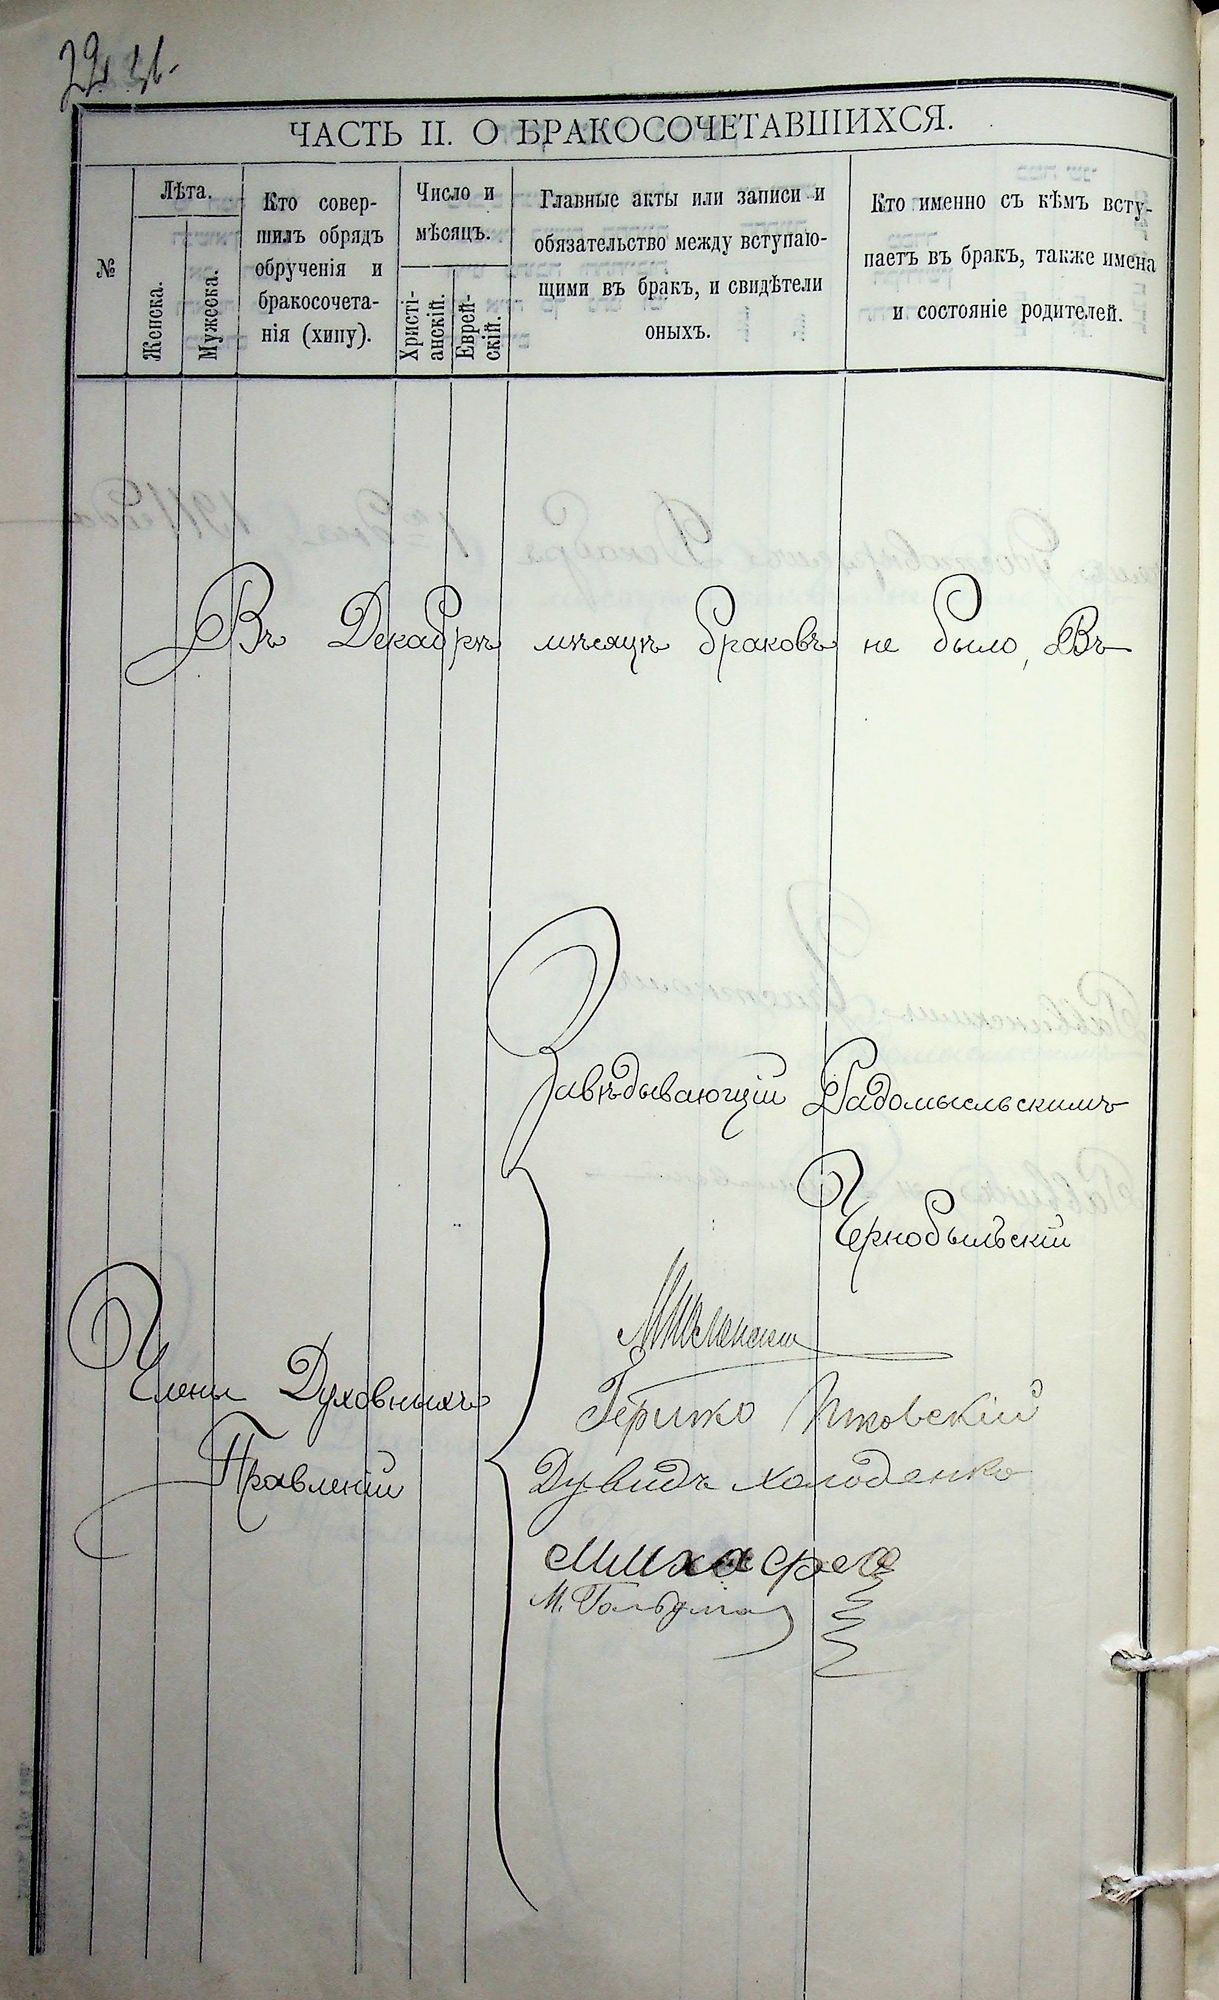 ЧАСТЬ II. О БРАКОСОЧЕТАВШИХСЯ.
№
Лѣта.
Женска.
Мужеска.
Кто совер-
шилъ обрядъ
обрученія и
бракосочета-
нія (хипу).
Число и
мѣсяцъ.
Христі-
анскій.
Еврей-
скій.
Главные акты или записи и
обязательство между вступаю-
щими въ бракъ, и свидѣтели
оныхъ.
Кто именно съ кѣмъ всту-
паетъ въ бракъ, также имена
и состояніе родителей.
Въ Декабрѣ мѣсяцѣ браковъ не было, Въ
Завѣдывающій Радомысльскимъ
Чернобыльскій
Члены Духовныхъ
Правленій
Дувидъ Холоденко
М. Гольдма